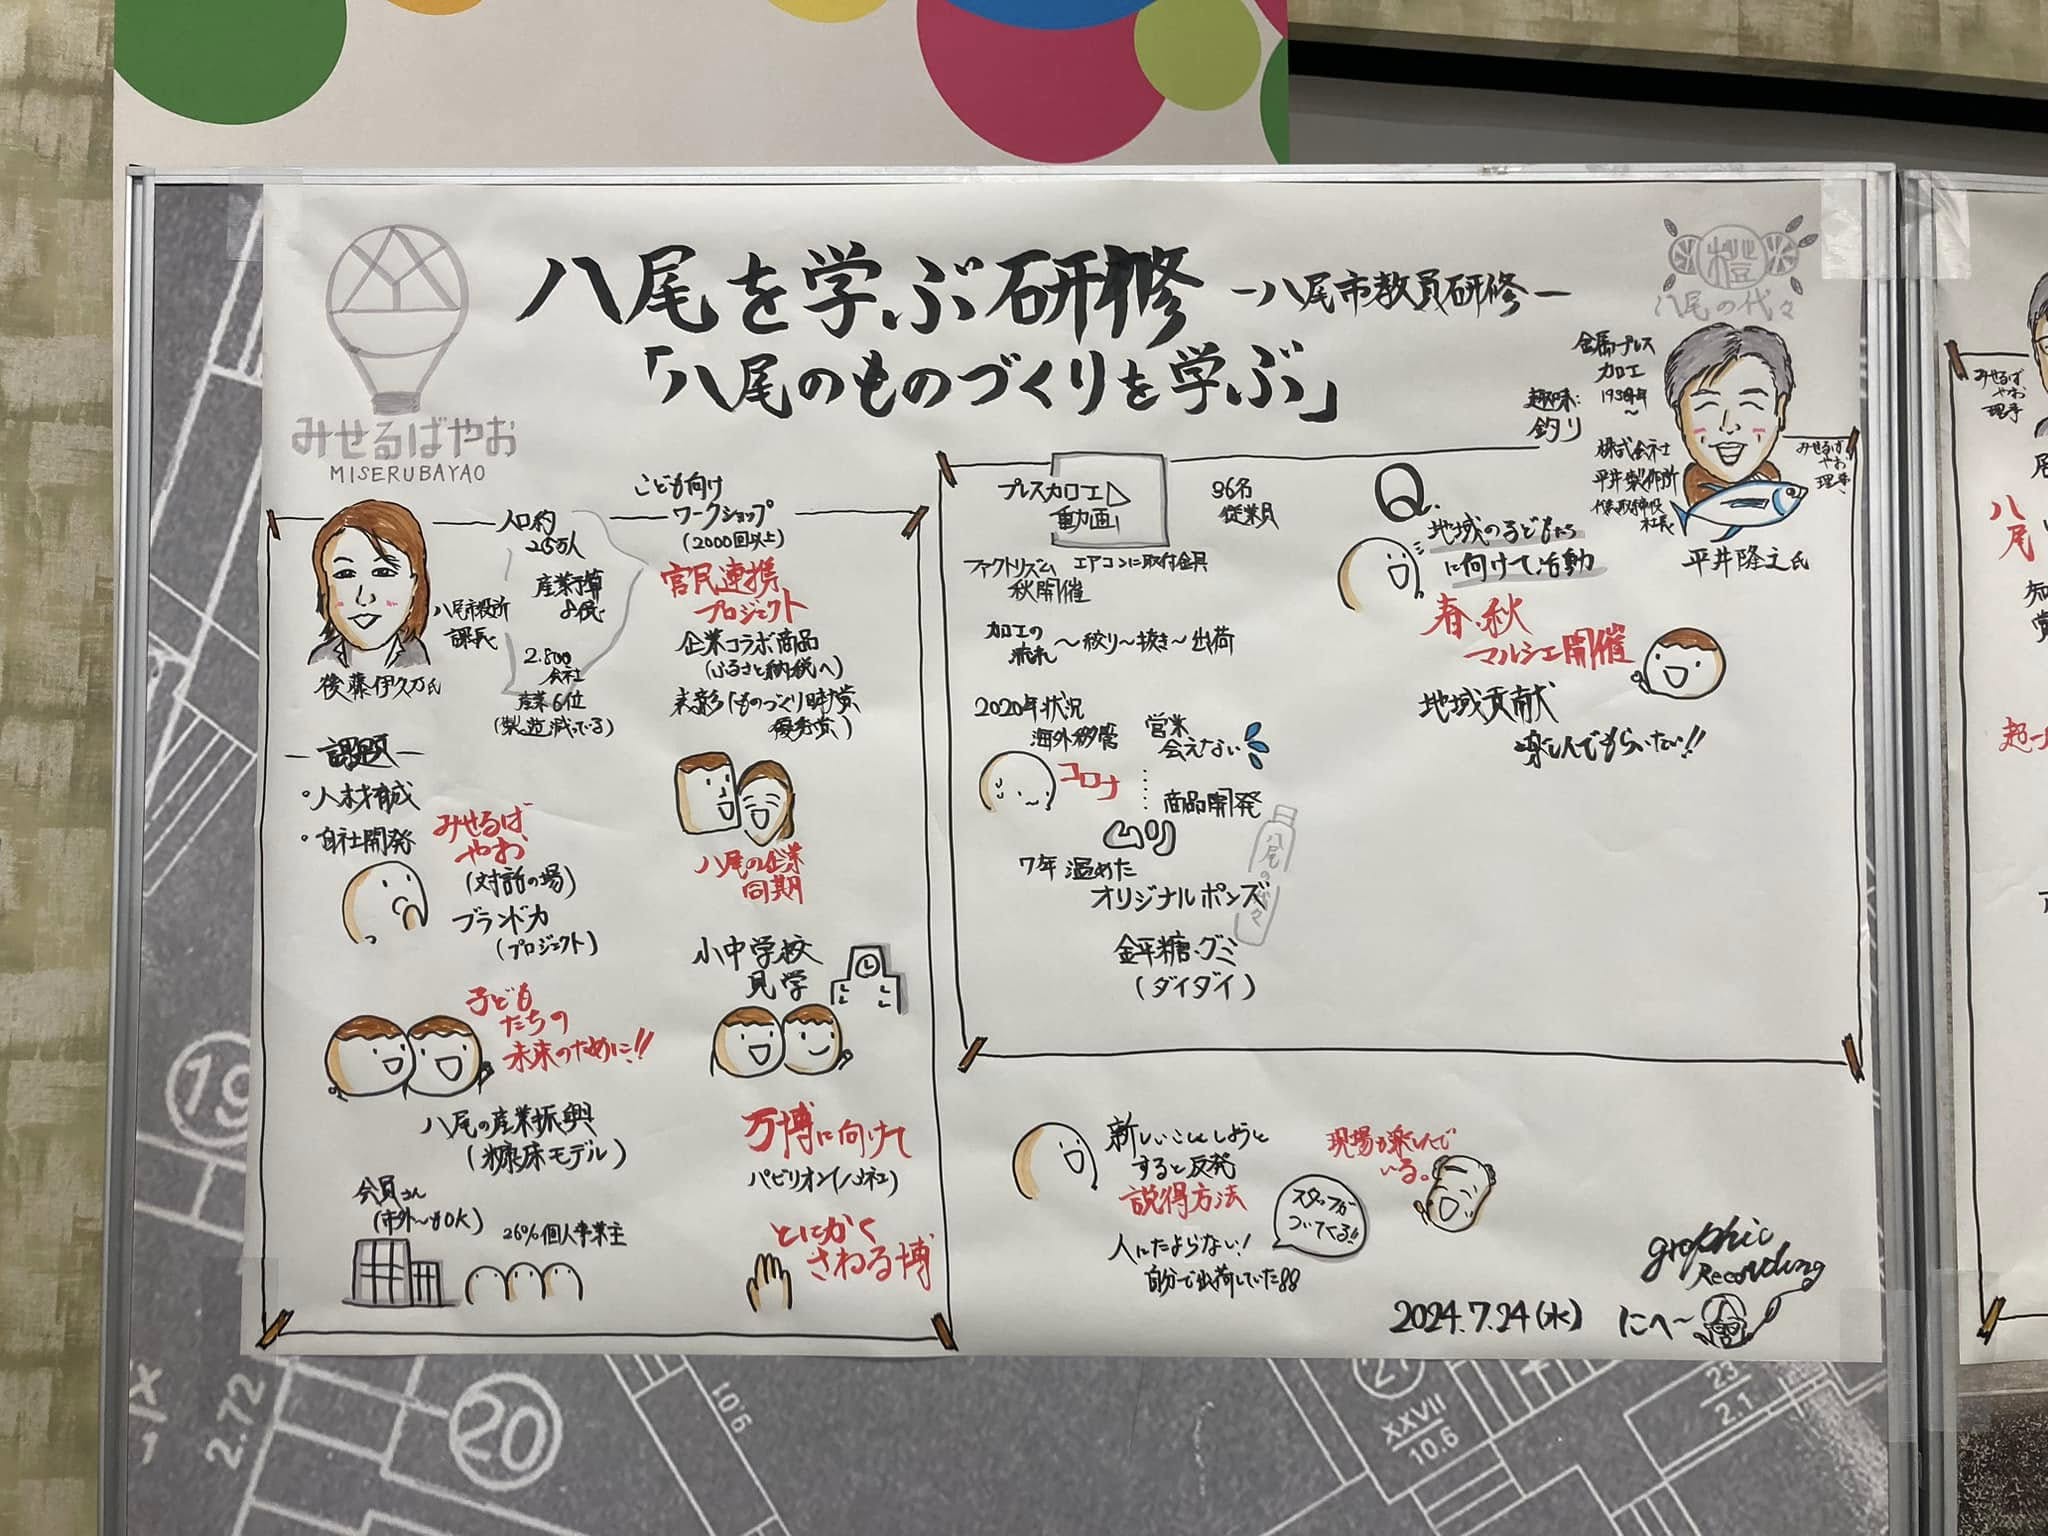 八尾を学ぶ研修 ー八尾市教員研修ー
「八尾のものづくりを学ぶ」
みせるばやお
MISERUBAYAO
橙
八尾の代々
金属プレス
加工
趣味:
釣り
株式会社
平井製作所
代表取締役
社長
みせるば
やお
理事
平井隆之氏
八尾市役所
課長
後藤伊久乃氏
人口約
26万人
産業予算
2.800
会社
産業6位
(製造減っている)
ー課題ー
・人材育成
・自社開発
みせるば
やお
(対話の場)
ブランド力
(プロジェクト)
子ども
たちの
未来のために!!
八尾の産業振興
(糠床モデル)
会員さん
(市外〜もOK)
26%個人事業主
こども向け
ワークショップ
(2000回以上)
官民連携
プロジェクト
企業コラボ商品
(ふるさと納税へ)
表彰(ものづくり
優秀賞)
八尾の企業
同期
小中学校
見学
万博に向けて
パビリオン
とにかく
さわる博
プレス加工
動画
36名
従業員
ファクトリズム
秋開催
エアコンに取付金具
加工の
流れ
〜絞り〜抜き〜出荷
2020年状況
海外移管
コロナ
営業
会えない
商品開発
ムリ
7年温めた
オリジナルポンズ
八尾の代々
金平糖・グミ
(ダイダイ)
Q.
地域の子どもたち
に向けて活動
春・秋
マルシェ開催
地域貢献
楽しんでもらいたい!!
新しいことしようと
すると反発
説得方法
人にたよらない!
自分で出荷していた
スタッフが
ついてくる!!
現場が楽しんで
いる。
graphic
Recording
2024.7.24(水)
にへ〜
みせるば
やお
理事
八尾
19
20
2.72
10.6
XXVII
10.6
23
2.1